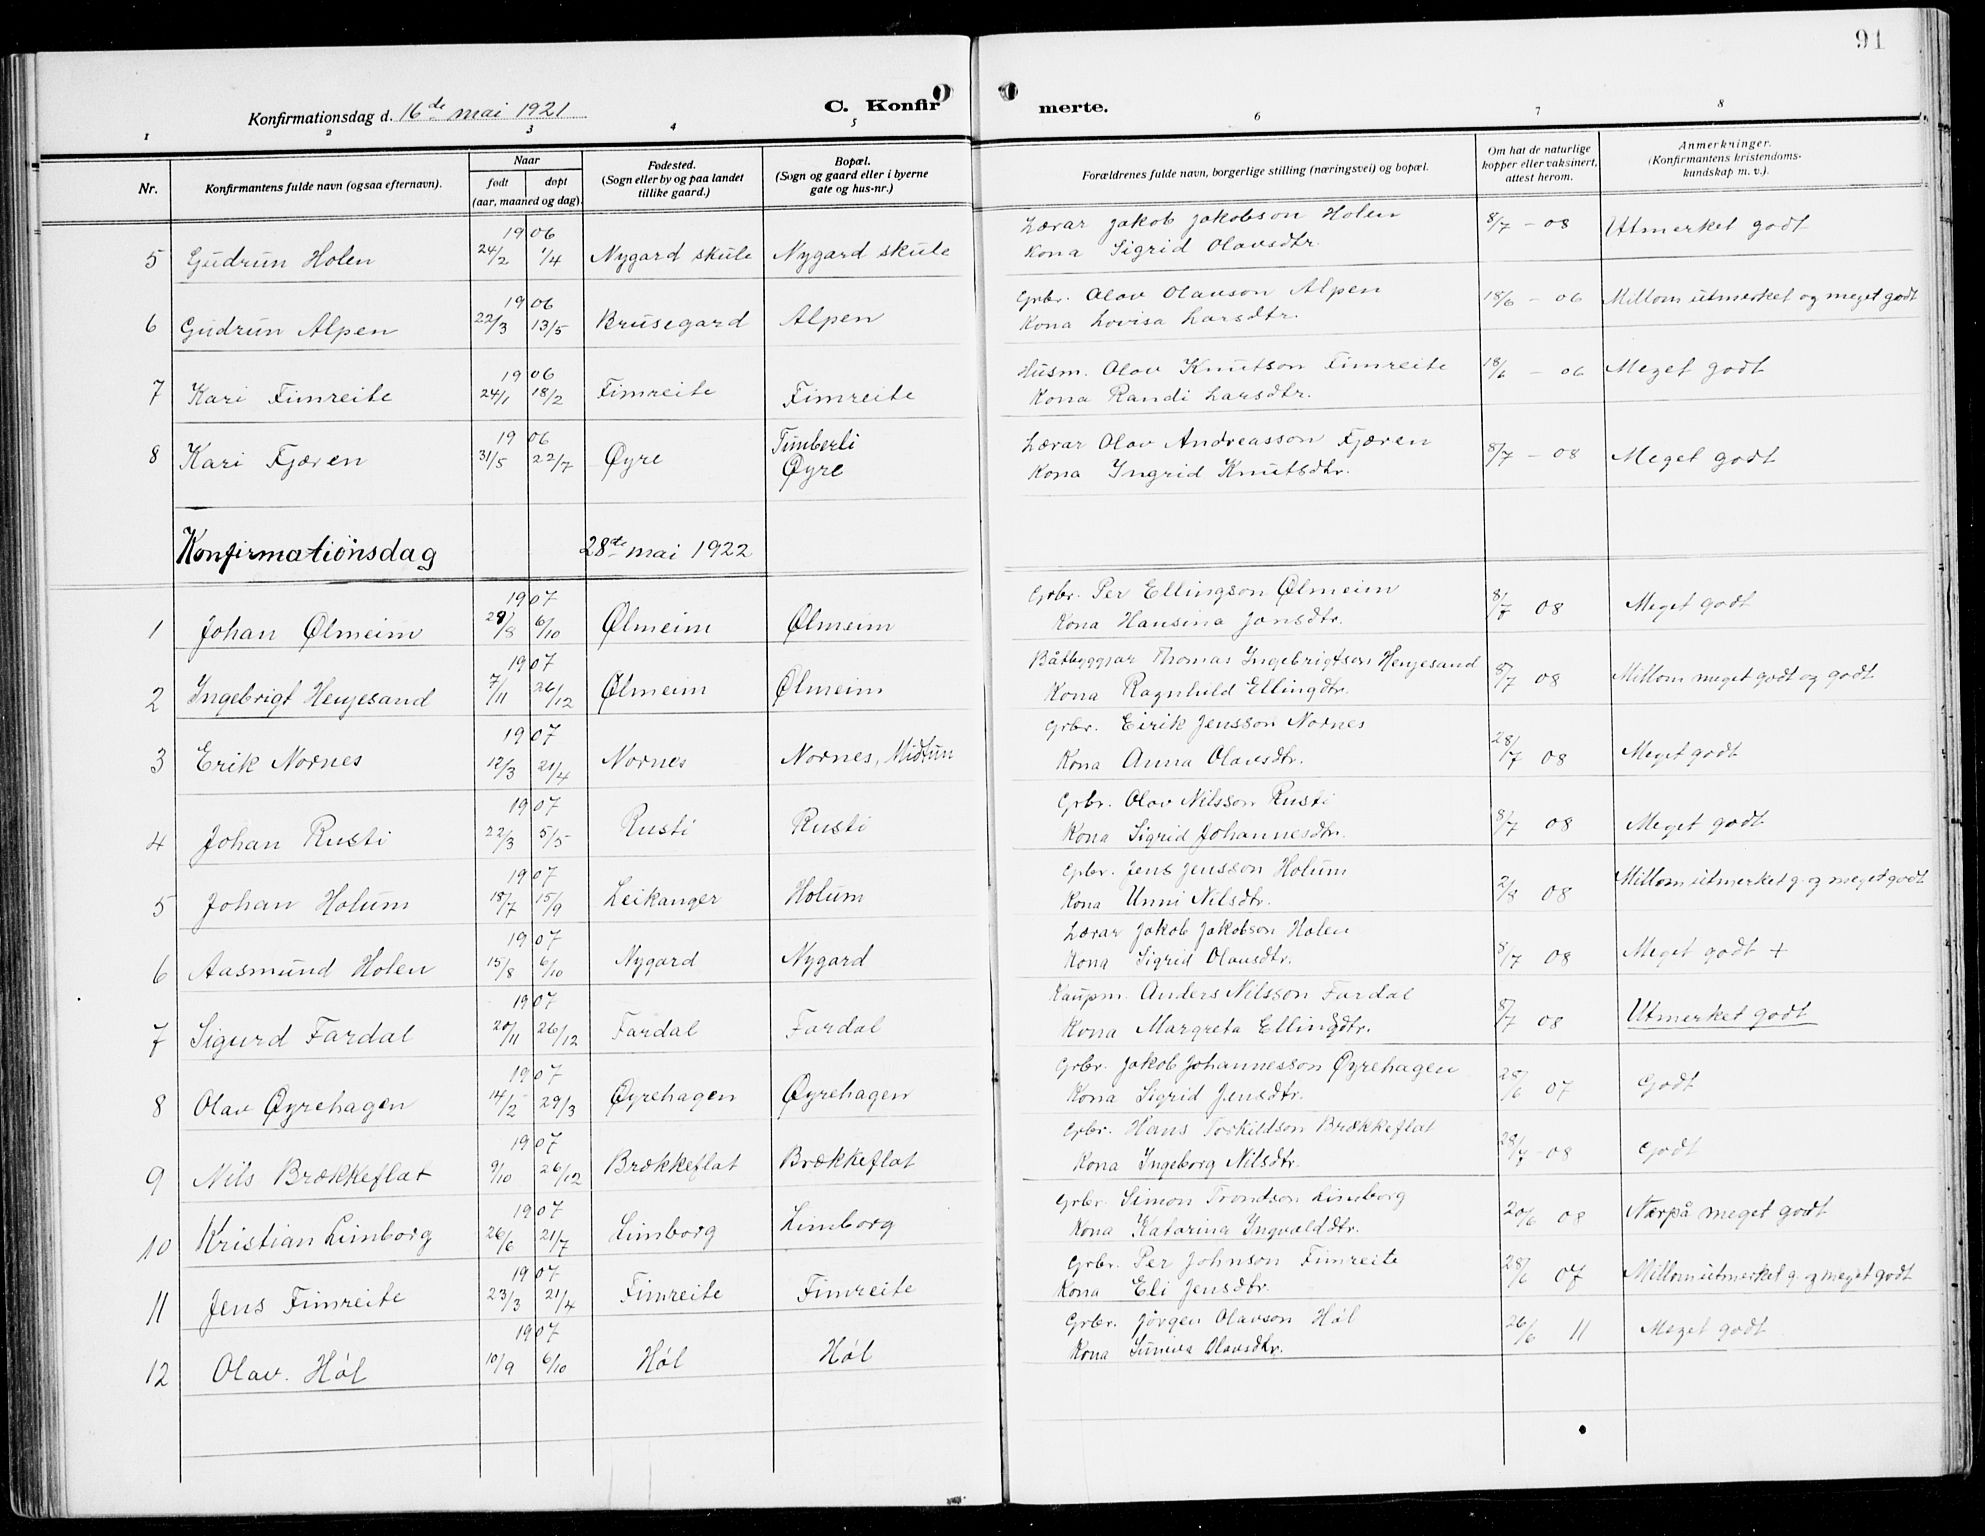 91
Konfirmationsdag d. 16de mai 1921
C. Konfirmerte.
1 2 3 4 5 6 7 8
Nr. | Konfirmantens fulde navn (ogsaa efternavn). | Naar født | døpt (aar, maaned og dag). | Fødested. (Sogn eller by og paa landet tillike gaard.) | Bopæl. (Sogn og gaard eller i byerne gate og hus-nr.) | Forældrenes fulde navn, borgerlige stilling (næringsvei) og bopæl. | Om hat de naturlige kopper eller vaksinert, attest herom. | Anmerkninger. (Konfirmantens kristendoms-kundskap m. v.).
5 Gudrun Holen 1906 24/2 1/4 Nygard skule Nygard skule Lærar Jakob Jakobson Holen Kona Sigrid Olavsdtr. 8/7 – 08 Utmerket godt
6 Gudrun Alpen 1906 22/3 13/5 Brusegard Alpen Grbr. Olav Olavson Alpen Kona Lovisa Larsdtr. 18/6 – 06 Millom utmerket og meget godt
7 Kari Fimreite 1906 24/1 18/2 Fimreite Fimreite Husm. Olav Knutson Fimreite Kona Randi Larsdtr. 18/6 – 06 Meget godt
8 Kari Fjæren 1906 31/5 22/7 Øyre Timberli Øyre Lærar Olav Andreasson Fjæren Kona Ingrid Knutsdtr. 8/7 – 08 Meget godt
Konfirmationsdag 28de mai 1922
1 Johan Ølmeim 1907 29/8 6/10 Ølmeim Ølmeim Grbr. Per Ellingson Ølmeim Kona Hansina Jonsdtr. 8/7 08 Meget godt
2 Ingebrigt Henjesand 1907 7/11 26/12 Ølmeim Ølmeim Båtbyggjar Thomas Ingebrigtson Henjesand Kona Ragnhild Ellingdtr. 8/7 08 Millom meget godt og godt
3 Erik Nornes 1907 12/3 21/4 Nornes Nornes, Midtun Grbr. Eirik Jensson Nornes Kona Anna Olavsdtr. 28/7 08 Meget godt
4 Johan Rusti 1907 22/3 5/5 Rusti Rusti Grbr. Olav Nilsson Rusti Kona Sigrid Johannesdtr. 8/7 08 Meget godt
5 Johan Holum 1907 18/7 15/9 Leikanger Holum Grbr. Jens Jensson Holum Kona Unni Nilsdtr. 2/8 08 Millom utmerket g. og meget godt
6 Aasmund Holen 1907 15/8 6/10 Nygard Nygard Lærar Jakob Jakobson Holen Kona Sigrid Olavsdtr. 8/7 08 Meget godt +
7 Sigurd Fardal 1907 20/11 26/12 Fardal Fardal Kaupm. Anders Nilsson Fardal Kona Margreta Ellingdtr. 8/7 08 Utmerket godt
8 Olav Øyrehagen 1907 14/2 29/3 Øyrehagen Øyrehagen Grbr. Jakob Johannesson Øyrehagen Kona Sigrid Jensdtr. 28/6 07 Godt
9 Nils Brækkeflat 1907 9/10 26/12 Brækkeflat Brækkeflat Grbr. Hans Torkildson Brækkeflat Kona Ingeborg Nilsdtr. 28/7 – 08 Godt
10 Kristian Limborg 1907 26/6 21/7 Limborg Limborg Grbr. Simon Trondson Limborg Kona Katarina Ingvalddtr. 20/6 08 Nærpå meget godt
11 Jens Fimreite 1907 23/3 21/4 Fimreite Fimreite Grbr. Per Johnson Fimreite Kona Eli Jensdtr. 28/6 07 Millom utmerket g. og meget godt
12 Olav Høl 1907 10/9 6/10 Høl Høl Grbr. Jørgen Olavson Høl Kona Suniva Olavsdtr. 26/6 11 Meget godt